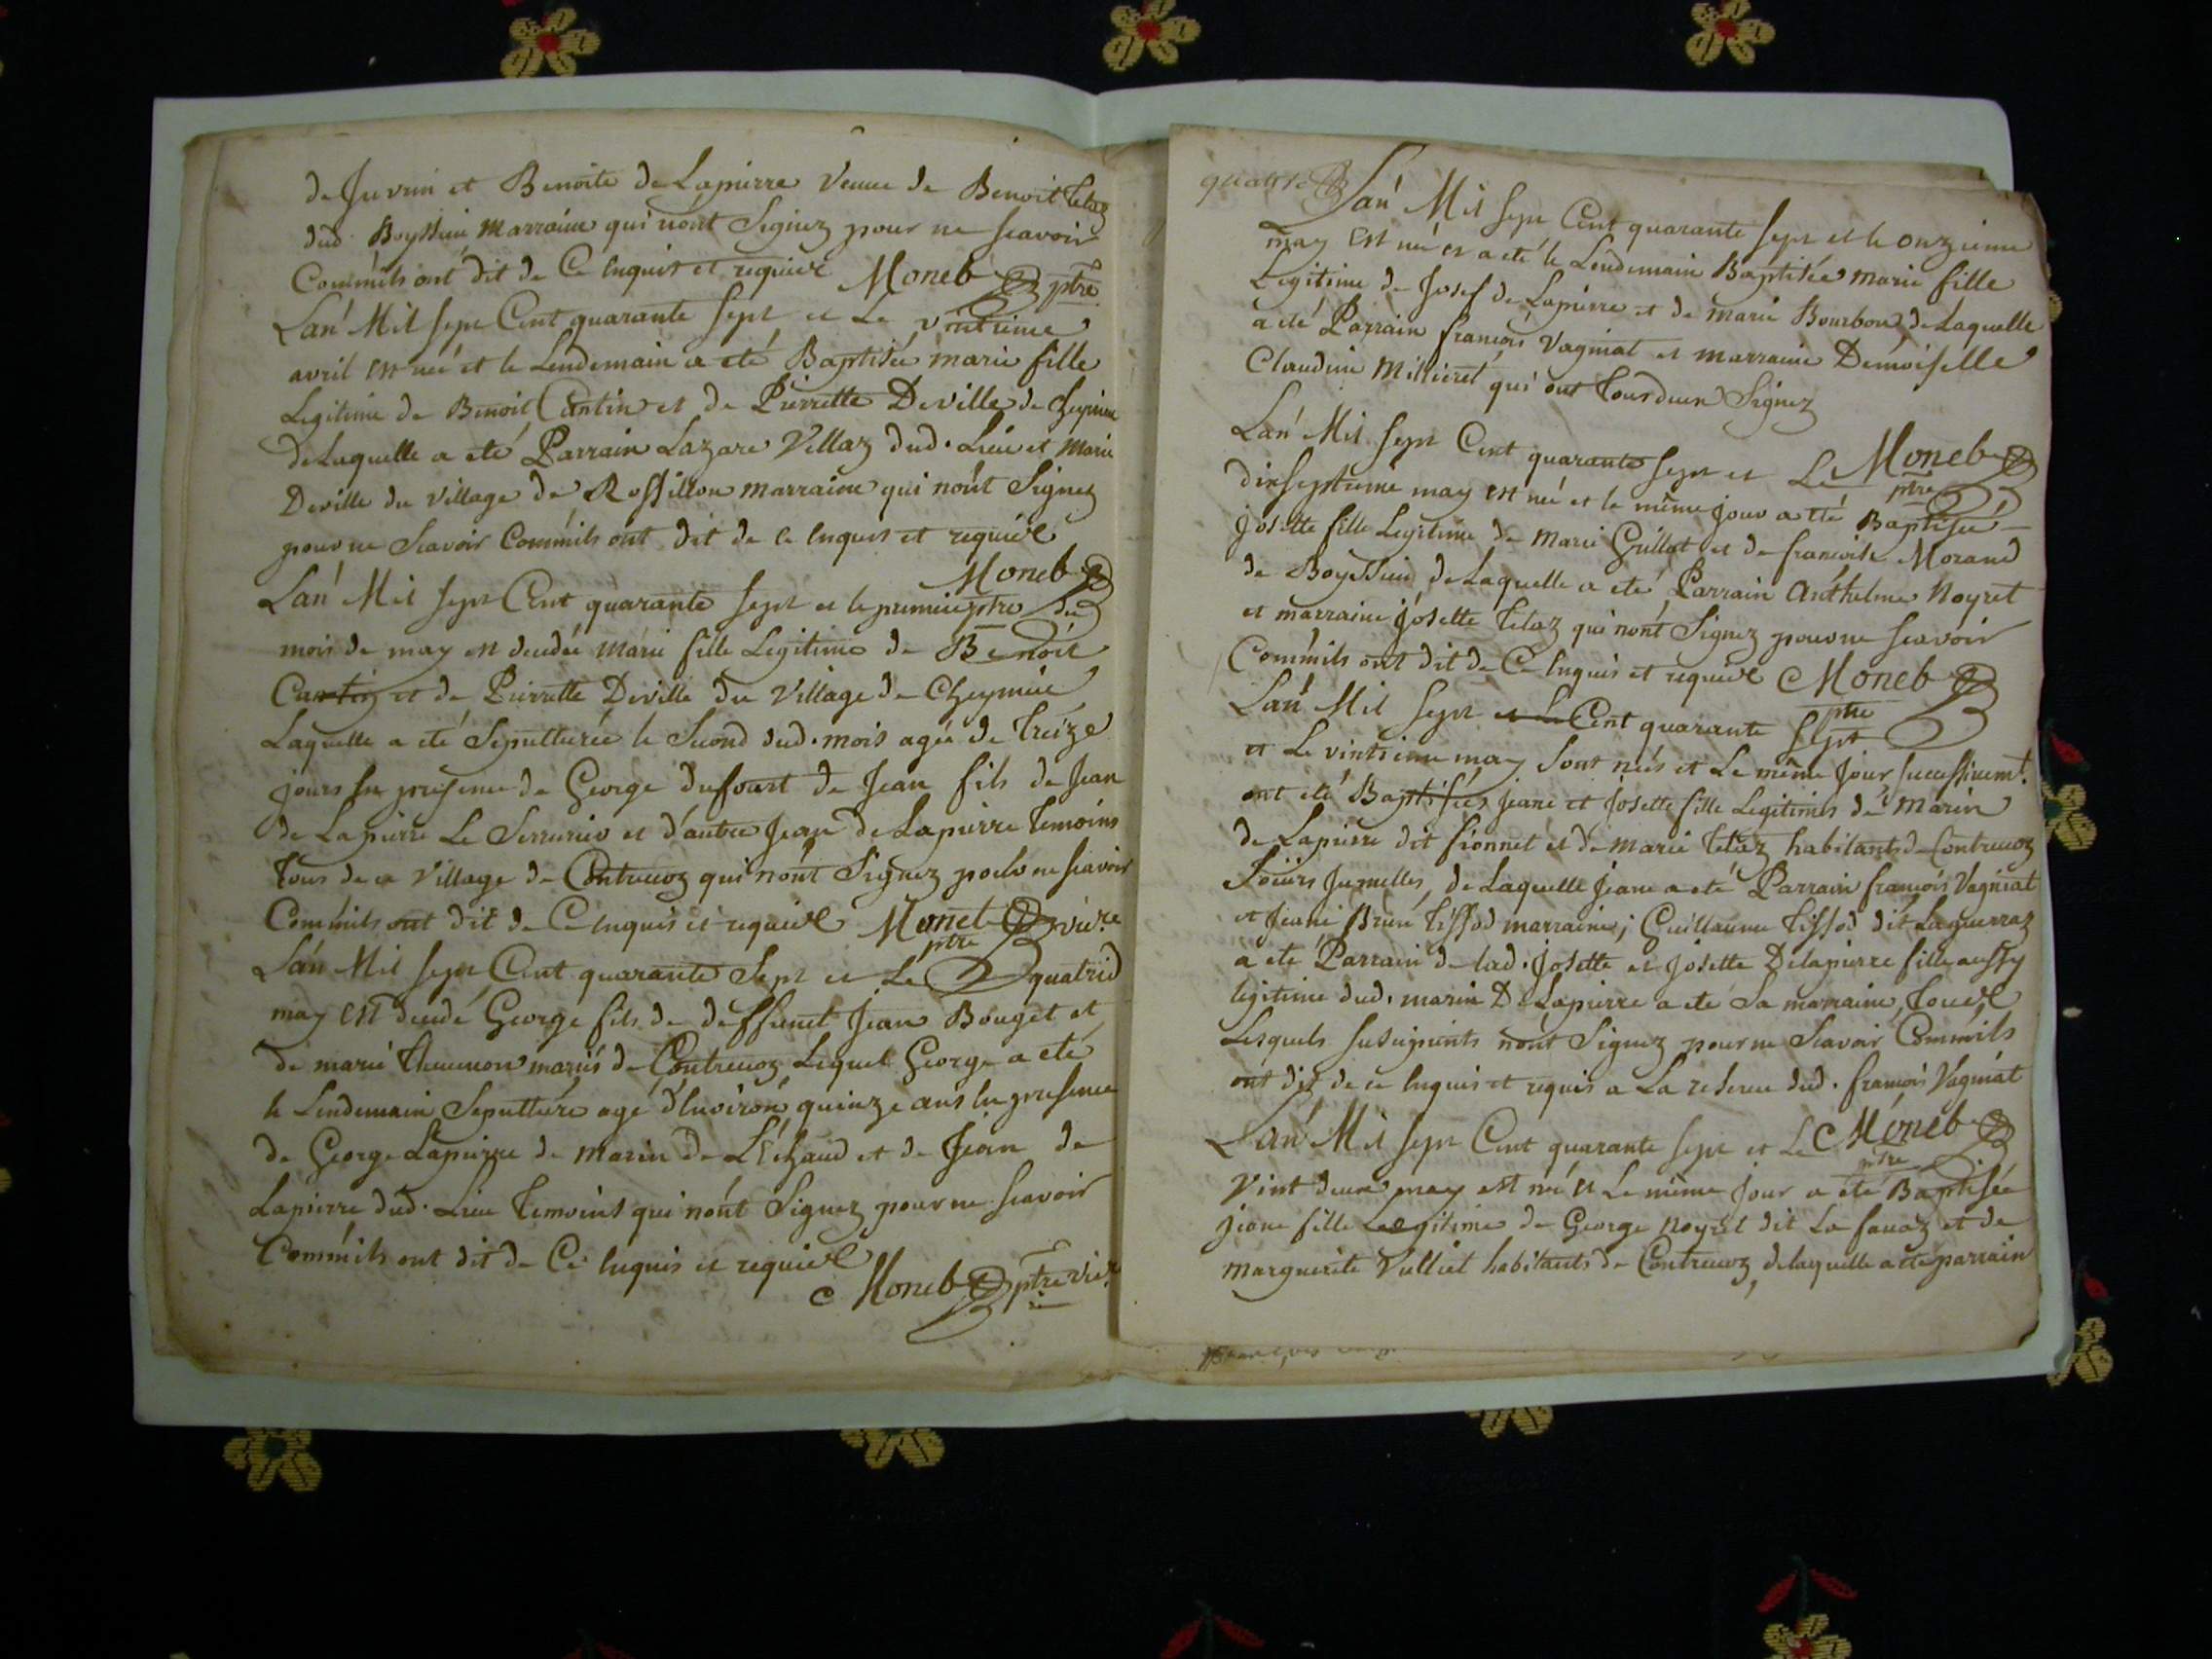 de Juvrin et Benoite de Lapierre veuve de Benoit Telaz
dud. Boyssieu marraine qui nont Signez pour ne scavoir
Comm'ils ont dit de Ce Enquis et requis Moneb ptre
Lan Mil sept Cent quarante sept et Le vintieme
avril est née et le Lendemain a eté Baptisée marie fille
Legitime de Benoit Cantin et de Pierrette Deville de
de Laquelle a eté Parrain Lazare Villaz dud. Lieu et Marie
Deville du village de Rossillon marraine qui nont Signez
pour ne Scavoir Comm'ils ont dit de ce Enquis et requis
Moneb
Lan Mil sept Cent quarante sept et le premier ptre du
mois de may est decedée marie fille Legitime de Benoit
Cantin et de Pierrette Deville du Village de Cheymieu
Laquelle a eté Sepulturée le Second dud. mois agée de Treize
jours En presence de George Dufourt de Jean fils de Jean
de Lapierre Le Serrurier et d'autre Jean de Lapierre Temoins
tous de ce Village de Contrevoz qui nont Signez pour ne scavoir
Comm'ils ont dit de Ce Enquis et requis Monet ptre vicre
Lan Mil sept Cent quarante Sept et Le quatrie
may est decedé George fils de deffunct Jean Bouget et
de marie Thevenon mariés de Contrevoz Lequel George a eté
le Lendemain Sepulturé agé d'Environ quinze ans En presence
de George Lapierre de marin de L'Echaud et de Jean de
Lapierre dud. Lieu Temoins qui nont Signez pour ne scavoir
Comm'ils ont dit de Ce Enquis et requis
Moneb ptre vicre
quatre
Lan Mil sept Cent quarante sept et le onzieme
may est née et a eté le Lendemain Baptisée marie fille
Legitime de Josef de Lapierre et de marie Bourbon de Laquelle
a eté Parrain francois Vagniat et marraine Demoiselle
Claudine Millieret qui ont tous deux Signez
Moneb ptre
Lan Mil sept Cent quarante sept et Le
dixseptieme may est née et le même jour a eté Baptisée
Josette fille Legitime de Marin Grillot et de francoise Morand
de Boyssieu de Laquelle a eté Parrain Anthelme Noyret
et marraine Josette Telaz qui nont Signez pour ne scavoir
Comm'ils ont dit de Ce Enquis et requis Moneb ptre
Lan Mil sept et le Cent quarante sept
et Le vintieme may Sont nées et Le même Jour successivemt.
ont eté Baptisées jeane et josette fille Legitimes de marin
de Lapierre dit fionnet et de marie Telaz habitants de Contrevoz
Soeurs Jumelles, de Laquelle jeane a eté Parrain francois Vagniat
et Jeane Brune Tissod marraine; Guillaume Tissod dit Laguerraz
a eté Parrain de lad. Josette et Josette Delapierre fille aussy
legitime dud. marin De Lapierre a eté Sa marraine, tous
Lesquels Susd nont Signez pour ne Scavoir Comm'ils
ont dit de ce Enquis et requis a La reserve dud. francois Vagniat
Moneb ptre
Lan Mil sept Cent quarante sept et Le
vint deux may est née et Le même Jour a eté Baptisée
jeane fille Legitime de George Noyret dit La favaz et de
marguerite Vulliet habitants de Contrevoz, delaquelle a eté parrain